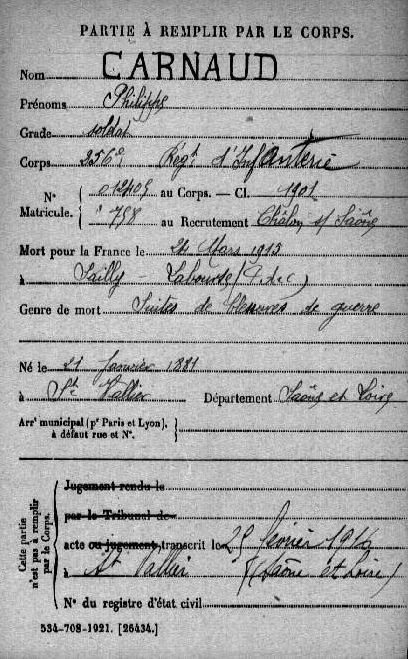 PARTIE À REMPLIR PAR LE CORPS.
Nom CARNAUD
Prénoms Philippe
Grade soldat
Corps 256e Régt d'Infanterie
N° Matricule. 012405 au Corps. — Cl. 1901
798 au Recrutement Châlon s/ Saône
Mort pour la France le 24 Mars 1915
à Sailly - Labourse (P. de C)
Genre de mort Suites de blessures de guerre
Né le 21 Janvier 1881
à St Vallier Département Saône et Loire
Arrt municipal (pr Paris et Lyon),
à défaut rue et N°.
Cette partie n'est pas à remplir par le Corps.
Jugement rendu le
par le Tribunal de
acte ou jugement transcrit le 25 février 1916
à St Vallier (Saône et Loire)
N° du registre d'état civil
534-708-1921. [26434.]